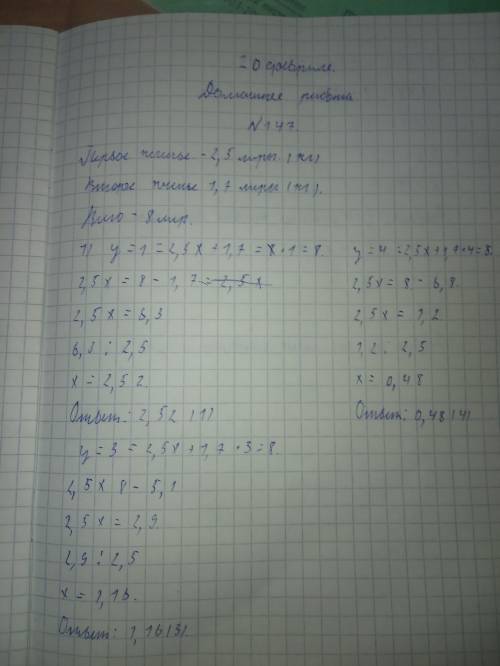 20 февраля.
Домашняя работа
№147.
Первое печенье - 2,5 лиры. (кг)
Второе печенье 1,7 лиры (кг).
Всего - 8 лир.
1) y = 1 = 2,5x + 1,7 = 8 · 1 = 8.
2,5x = 8 - 1,7 = 2,5x
2,5x = 6,3
6,3 : 2,5
x = 2,52.
Ответ: 2,52 (1)
y = 3 = 2,5x + 1,7 · 3 = 8.
2,5x 8 - 5,1
2,5x = 2,9.
2,9 : 2,5
x = 1,16.
Ответ: 1,16 (3).
y = 4 = 2,5x + 1,7 · 4 = 8.
2,5x = 8 - 6,8.
2,5x = 1,2
1,2 : 2,5
x = 0,48
Ответ: 0,48 (4)